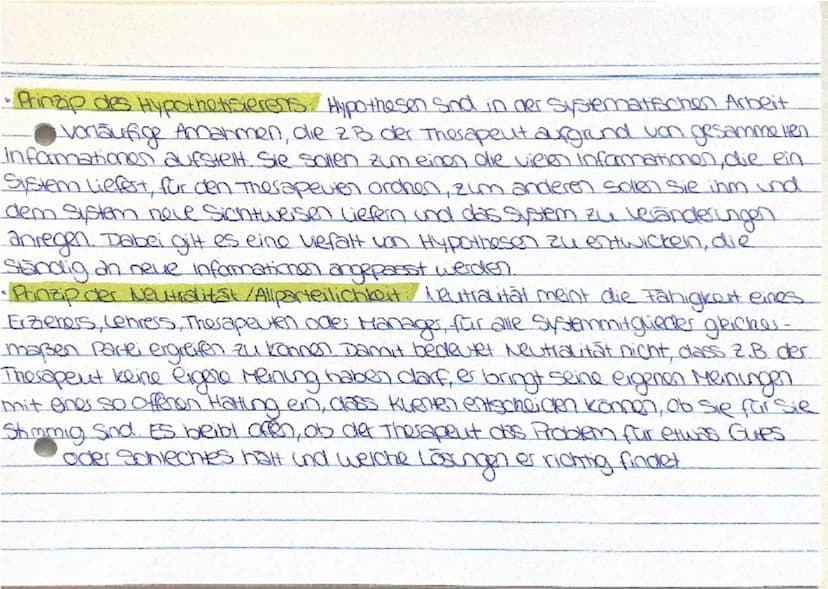 · Prinzip des Hypothetisierens: Hypothesen sind in der systematischen Arbeit
vorläufige Annahmen, die z.B. der Therapeut aufgrund von gesammelten
Informationen aufstellt. Sie sollen zum einen die vielen Informationen, die ein
System liefert, für den Therapeuten ordnen, zum anderen sollen sie ihm und
dem System neue Sichtweisen liefern und das System zu Veränderungen
anregen. Dabei gilt es eine Vielfalt von Hypothesen zu entwickeln, die
ständig an neue Informationen angepasst werden.
· Prinzip der Neutralität/Allparteilichkeit: Neutralität meint die Fähigkeit eines
Erziehers, Lehrers, Therapeuten oder Manager, für alle Systemmitglieder gleicher-
maßen Partei ergreifen zu können. Damit bedeutet Neutralität nicht, dass z.B. der
Therapeut keine eigene Meinung haben darf, er bringt seine eigenen Meinungen
mit einer so offenen Haltung ein, dass Klienten entscheiden können, ob sie für sie
stimmig sind. Es bleibt offen, ob der Therapeut das Problem für etwas Gutes
oder Schlechtes hält und welche Lösungen er richtig findet